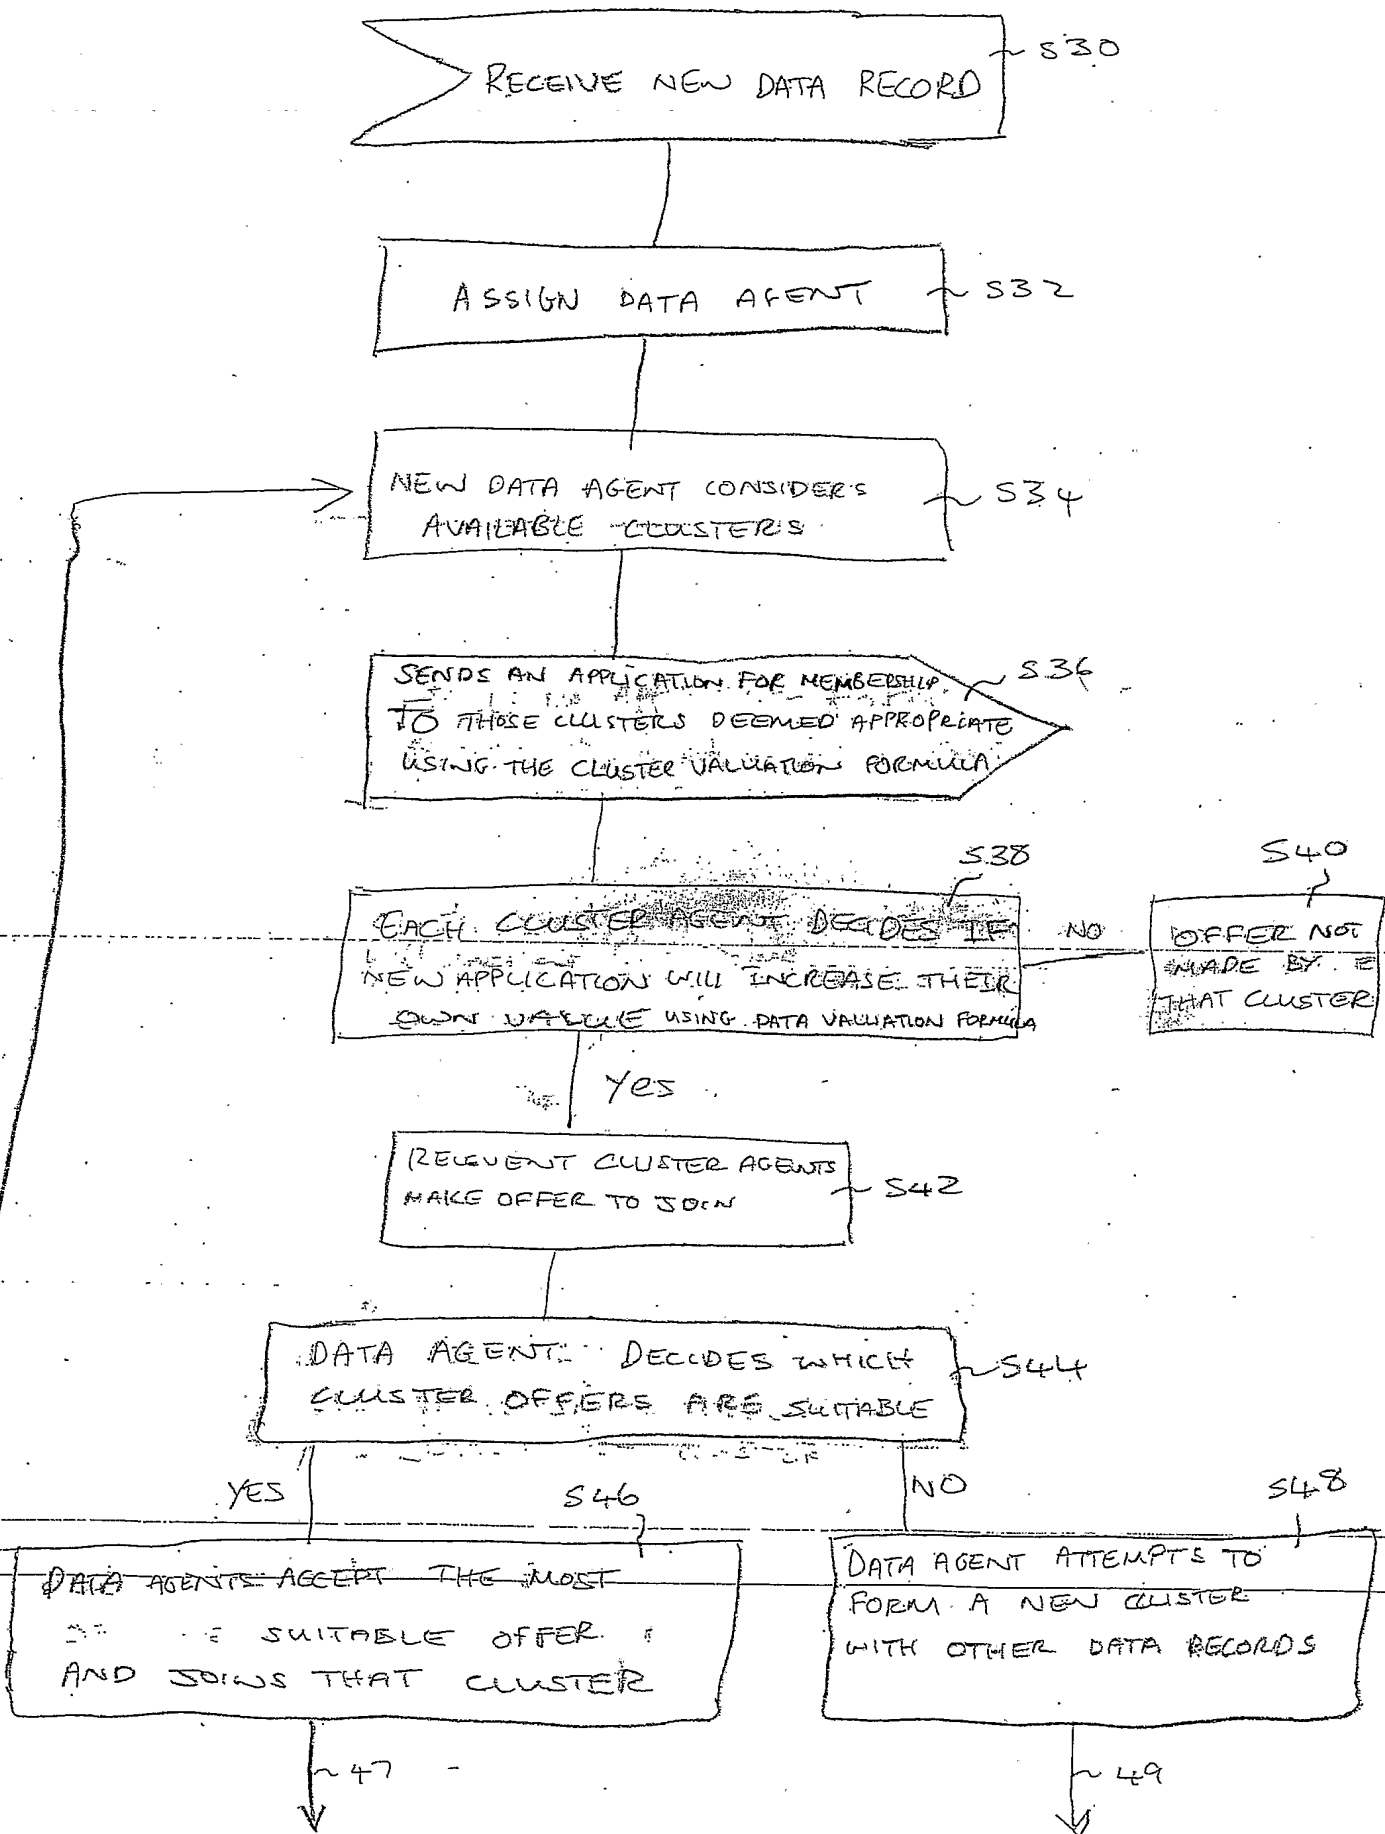 RECEIVE NEW DATA RECORD
S30
ASSIGN DATA AGENT
S32
NEW DATA AGENT CONSIDERS
AVAILABLE CLUSTERS
S34
SENDS AN APPLICATION FOR MEMBERSHIP
TO THOSE CLUSTERS DEEMED APPROPRIATE
USING THE CLUSTER VALUATION FORMULA
S36
S38
EACH CLUSTER AGENT DECIDES IF
NEW APPLICATION WILL INCREASE THEIR
OWN VALUE USING DATA VALUATION FORMULA
NO
S40
OFFER NOT
MADE BY
THAT CLUSTER
Yes
RELEVENT CLUSTER AGENTS
MAKE OFFER TO JOIN
S42
DATA AGENT DECIDES WHICH
CLUSTER OFFERS ARE SUITABLE
S44
YES
NO
S46
DATA AGENTS ACCEPT THE MOST
SUITABLE OFFER
AND JOINS THAT CLUSTER
S48
DATA AGENT ATTEMPTS TO
FORM A NEW CLUSTER
WITH OTHER DATA RECORDS
47
49